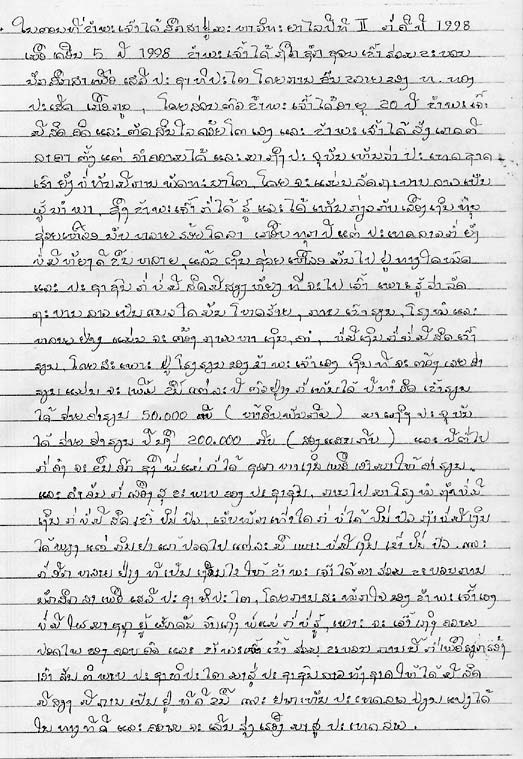 ໃນຕອນທີ່ຂ້າພະເຈົ້າໄດ້ສຶກສາຢູ່ມະຫາວິທະຍາໄລປີທີ II ກໍ່ຄືປີ 1998
ເມື່ອເດືອນ 5 ປີ 1998 ຂ້າພະເຈົ້າໄດ້ຖືກຊັກຊວນເຂົ້າຮ່ວມຂະບວນ
ນັກສຶກສາເພື່ອເສລີປະຊາທິປະໄຕ ໂດຍການຊັກຊວນຂອງ ທ. ທອງ
ປະເສີດ ເກື້ອກູນ, ໂດຍສ່ວນຕົວຂ້າພະເຈົ້າໄດ້ອາຍຸ 20 ປີ ຂ້າພະເຈົ້າ
ມີສິດຄິດແລະຕັດສິນໃຈດ້ວຍໂຕເອງ ແລະ ຂ້າພະເຈົ້າໄດ້ສັງເກດຕີ
ລາຄາຕັ້ງແຕ່ຈຳຄວາມໄດ້ແລະມາເຖິງປະຈຸບັນເຫັນວ່າປະເທດຊາດ
ເຮົາຍັງບໍ່ທັນມີການພັດທະນາໂຕ ໂດຍຈະແມ່ນລັດຖະບານລາວເປັນ
ຜູ້ນຳພາ, ສິ່ງຂ້າພະເຈົ້າກໍ່ໄດ້ຮູ້ແລະໄດ້ເຫັນກ່ຽວກັບເລື່ອງເງິນທຶນ
ຊ່ວຍເຫຼືອນັບຫລາຍຮ້ອຍໂດລາ ເກືອບທຸກປີແຕ່ປະເທດລາວກໍ່ຍັງ
ບໍ່ມີຫຍັງດີຂຶ້ນຫລາຍ, ແລ້ວເງິນຊ່ວຍເຫຼືອມັນໄປຢູ່ທາງໃດໝົດ
ແລະ ປະຊາຊົນກໍ່ບໍ່ມີສິດມີສຽງຫຍັງທີ່ຈະໄປເວົ້າ ເພາະຮູ້ວ່າລັດ
ຖະບານລາວເປັນຄົນໃດມັນໂຫດຮ້າຍ, ການເຂົ້າຮຽນ, ໂຮງໝໍແລະ
ຫລາຍຢ່າງແມ່ນຈະຕ້ອງ ທາງເງິນ, ບໍ່ມີເງິນກໍ່ບໍ່ມີສິດເຂົ້າ
ຮຽນ, ໂດຍສະເພາະຢູ່ໂຮງຮຽນຂອງຂ້າພະເຈົ້າເອງເງິນທີ່ຈະຕ້ອງເສຍຄ່າ
ຮຽນແມ່ນຈະເພີ່ມຂຶ້ນແຕ່ລະປີ ຕົວຢ່າງກໍ່ເຫັນໄດ້ປີທຳອິດເຂົ້າຮຽນ
ໄດ້ຈ່າຍຄ່າຮຽນ 50.000 ກີບ (ຫ້າສິບພັນກີບ) ມາເຖິງປະຈຸບັນ
ໄດ້ຈ່າຍຄ່າຮຽນປີນຶ່ງ 200.000 ກີບ (ສອງແສນກີບ) ແລະປີຕໍ່ໄປ
ກໍ່ຄົງຈະຂຶ້ນອີກຊຶ່ງພໍ່ແມ່ກໍ່ໄດ້ ຫາເງິນເພື່ອເອົາມາໃຫ້ຄ່າຮຽນ.
ແລະອີກອັນກໍ່ເລື່ອງສຸຂະພາບຂອງປະຊາຊົນ, ການໄປມາໂຮງໝໍຖ້າບໍ່ມີ
ເງິນກໍ່ບໍ່ມີສິດເຂົ້າປິ່ນປົວ, ເຈັບໜັກເທົ່າໃດກໍ່ບໍ່ໄດ້ປິ່ນປົວຖ້າບໍ່ມີເງິນ
ໄດ້ພຽງແຕ່ກິນຢາແກ້ປວດໄປແຕ່ລະມື້ເພາະບໍ່ມີເງິນເຂົ້າປິ່ນປົວ. ແລະ
ກໍ່ອີກຫລາຍຢ່າງທີ່ເປັນເງື່ອນໄຂໃຫ້ຂ້າພະເຈົ້າໄດ້ມາຮ່ວມຂະບວນການ
ນັກສຶກສາເພື່ອເສລີປະຊາທິປະໄຕ, ໂດຍການສະໝັກໃຈຂອງຂ້າພະເຈົ້າເອງ
ບໍ່ມີໃຜມາຊຸກຍູ້ຜັກດັນ ຈົນເຖິງພໍ່ແມ່ກໍ່ບໍ່ຮູ້, ເພາະຈະເວົ້າເຖິງຄວາມ
ປອດໄພຂອງຄອບຄົວ ແລະຂ້າພະເຈົ້າເຂົ້າຮ່ວມຂະບວນການນີ້ກໍ່ເພື່ອຮຽກຮ້ອງ
ເອົາສັນຕິພາບປະຊາທິປະໄຕມາສູ່ປະຊາຊົນລາວທັງຊາດໃຫ້ໄດ້ມີສິດ
ມີສຽງ ມີການເປັນຢູ່ທີ່ດີຂຶ້ນ ແລະ ຢາກເຫັນປະເທດລາວປ່ຽນແປງໄດ້
ໃນທາງທີ່ດີ ແລະຄວາມຈະເລີນຮຸ່ງເຮືອງມາສູ່ປະເທດລາວ.